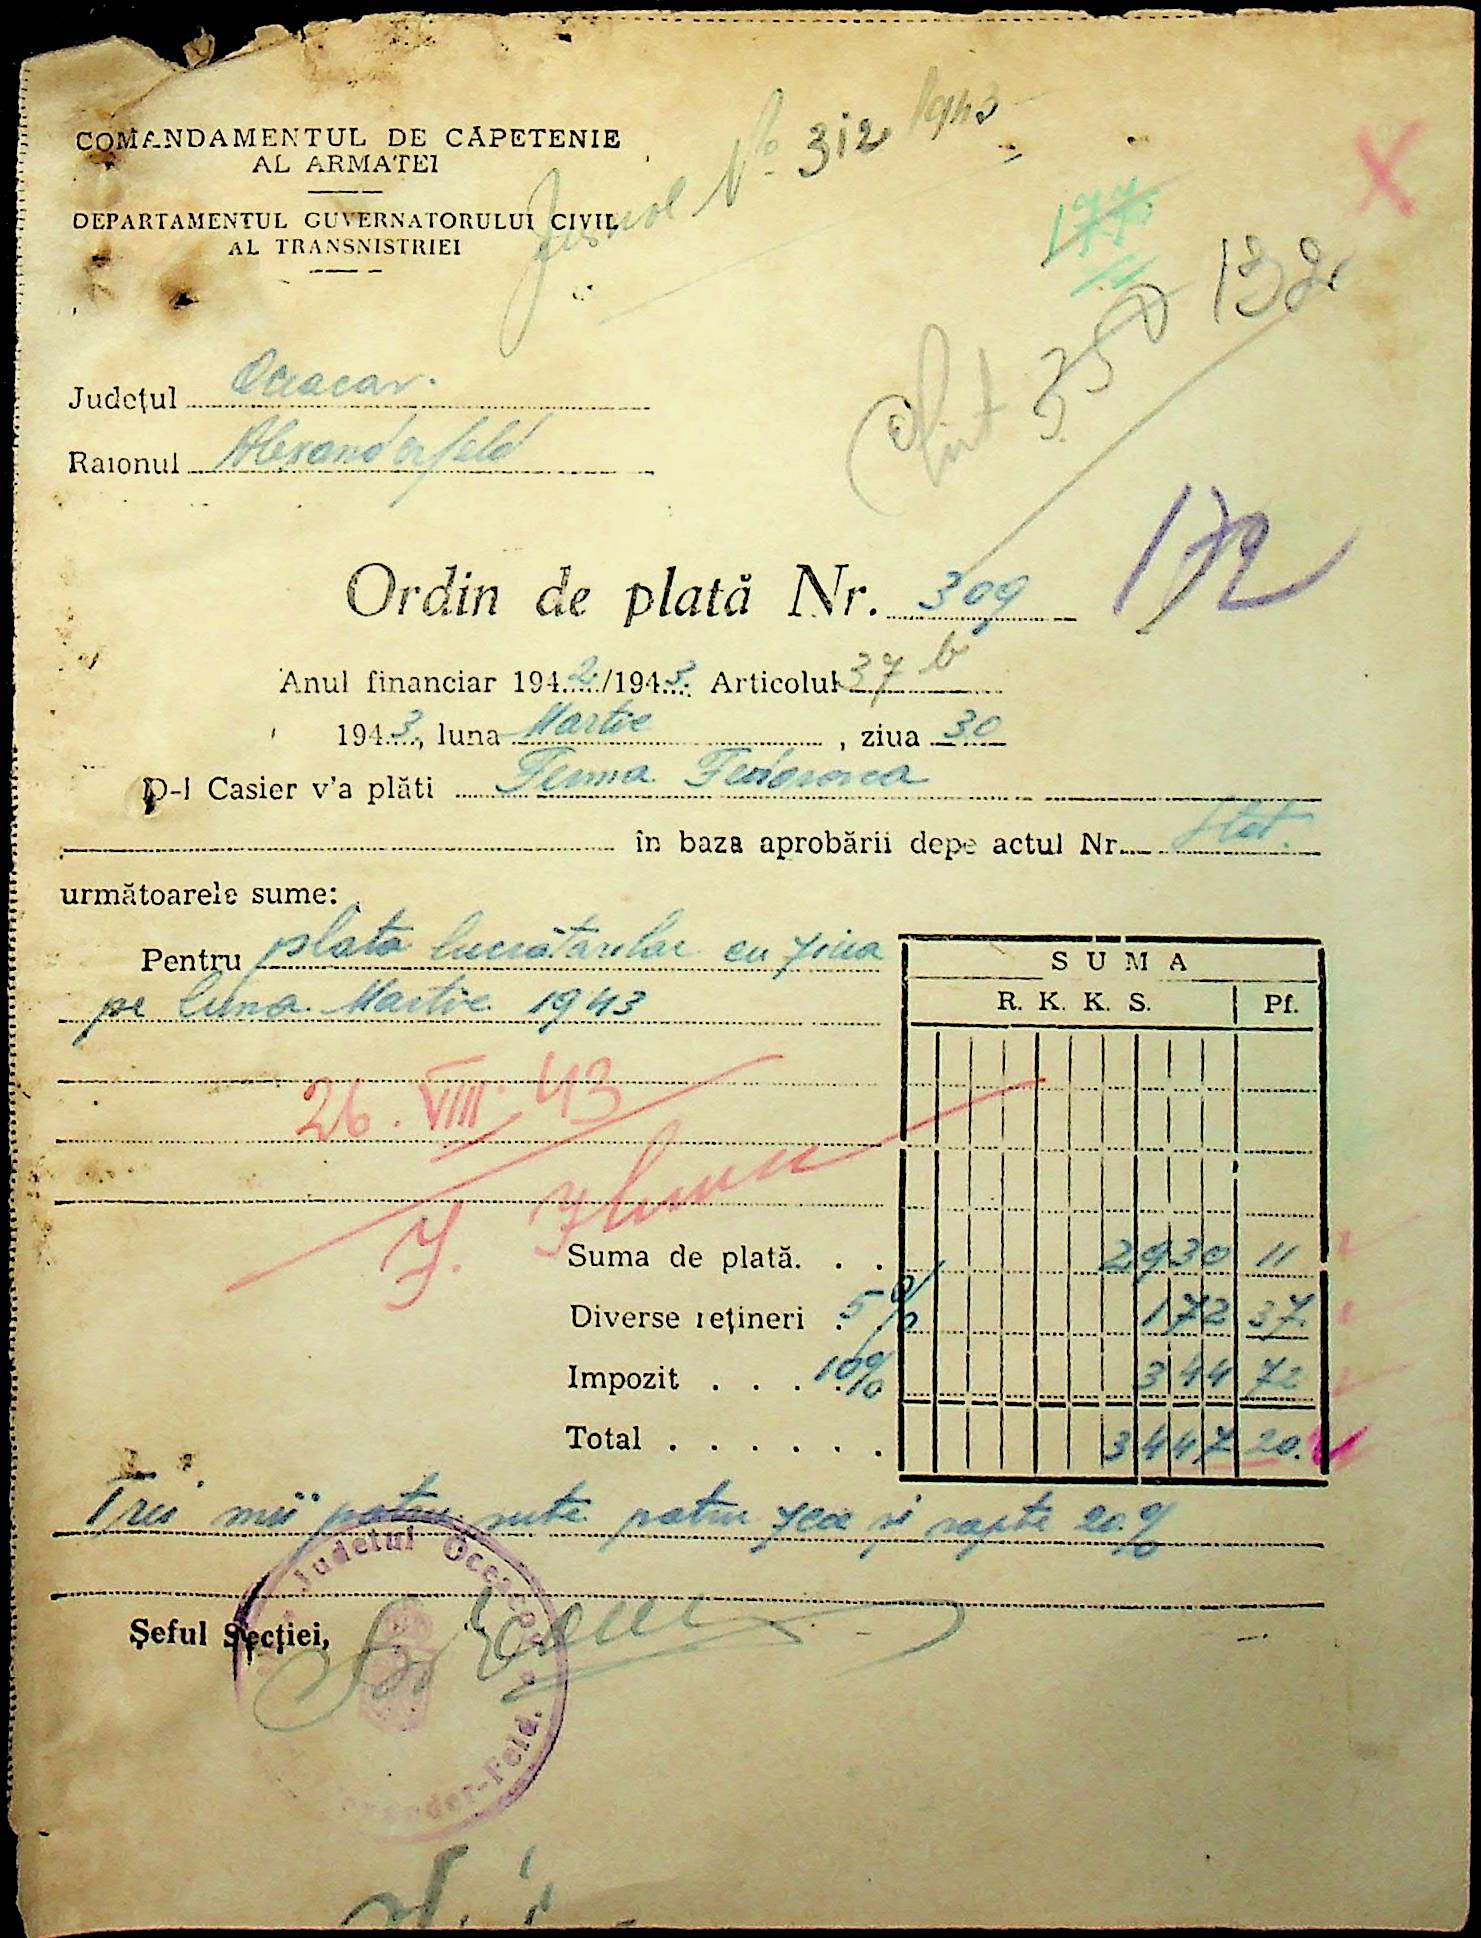 COMANDAMENTUL DE CĂPETENIE
AL ARMATEI
DEPARTAMENTUL GUVERNATORULUI CIVIL
AL TRANSNISTRIEI
No 312 1943
132
Județul Oceacov
Raionul Alexanderfeld
172
Ordin de plată Nr. 309
Anul financiar 1942/1943 Articolul 37 b
1943, luna Martie, ziua 30
D-l Casier v'a plăti
în baza aprobării depe actul Nr. Stat.
următoarele sume:
Pentru plata lucrătorilor cu ziua
pe luna Martie 1943
SUMA
R. K. K. S. Pf.
26. VIII. 43
Suma de plată. . . 2930 11
Diverse rețineri . 5% 172 37.
Impozit . . . 10% 344 72
Total . . . . . . . 3447 20.
Trei mii patru sute patru zeci și șapte 20%
Șeful Secției,
Județul Oceacov